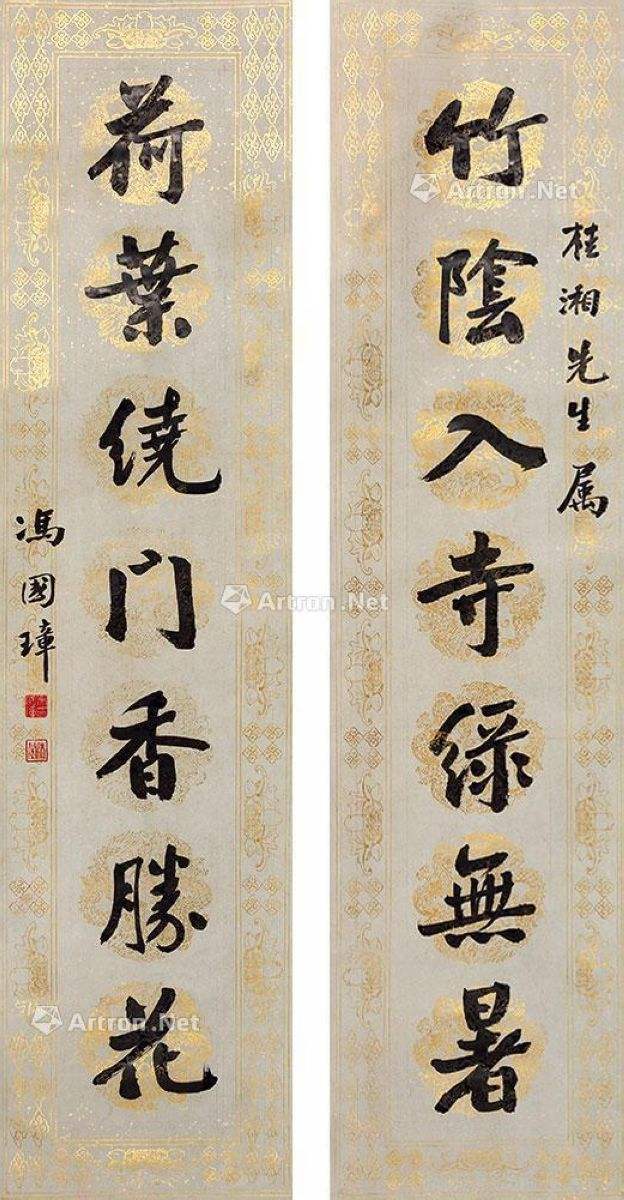 桂湘先生属
竹陰入寺綠無暑
荷葉繞门香勝花
馮國璋
Artron.Net
Artron.Net
Artron.Net